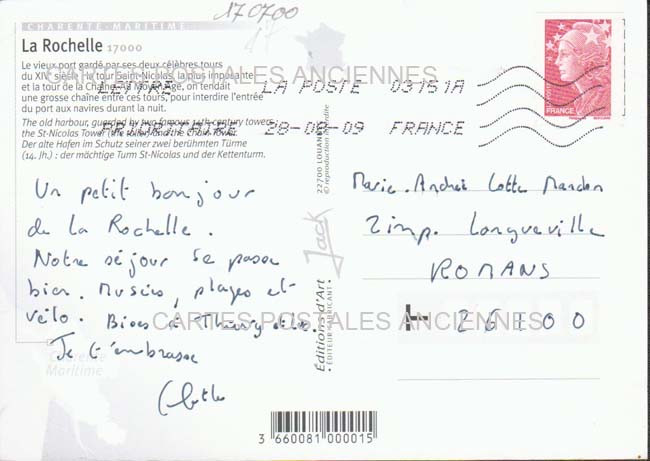 170700
CHARENTE-MARITIME
La Rochelle 17000
Le vieux port gardé par ses deux célèbres tours
du XIVe siècle : la tour Saint-Nicolas, la plus imposante
et la tour de la Chaîne. Au Moyen Age, on tendait
une grosse chaîne entre ces tours, pour interdire l'entrée
du port aux navires durant la nuit.
The old harbour, guarded by two famous 14th century towers :
the St-Nicolas Tower and the Chain Tower.
Der alte Hafen im Schutz seiner zwei berühmten Türme
(14. Jh.) : der mächtige Turm St-Nicolas und der Kettenturm.
CARTES POSTALES ANCIENNES
LETTRE LA POSTE 03161A
PRIORITAIRE 28-08-09 FRANCE
FRANCE
Un petit bonjour
de la Rochelle.
Notre séjour se passe
bien. Musées, plages et
vélo. Bises à Thierry
Je t'embrasse
22700 LOUANNEC
© reproduction interdite
Jack
Editions d'Art
EDITEUR-FABRICANT
Marie-Andrée Cotte Mandon
2 imp. Longueville
ROMANS
26100
CARTES POSTALES ANCIENNES
Charente
Maritime
3 660081 000015